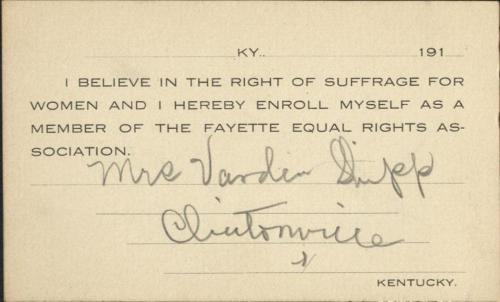 KY. 191
I BELIEVE IN THE RIGHT OF SUFFRAGE FOR
WOMEN AND I HEREBY ENROLL MYSELF AS A
MEMBER OF THE FAYETTE EQUAL RIGHTS AS-
SOCIATION.
Mrs Varden Shipp
Clintonville
KENTUCKY.